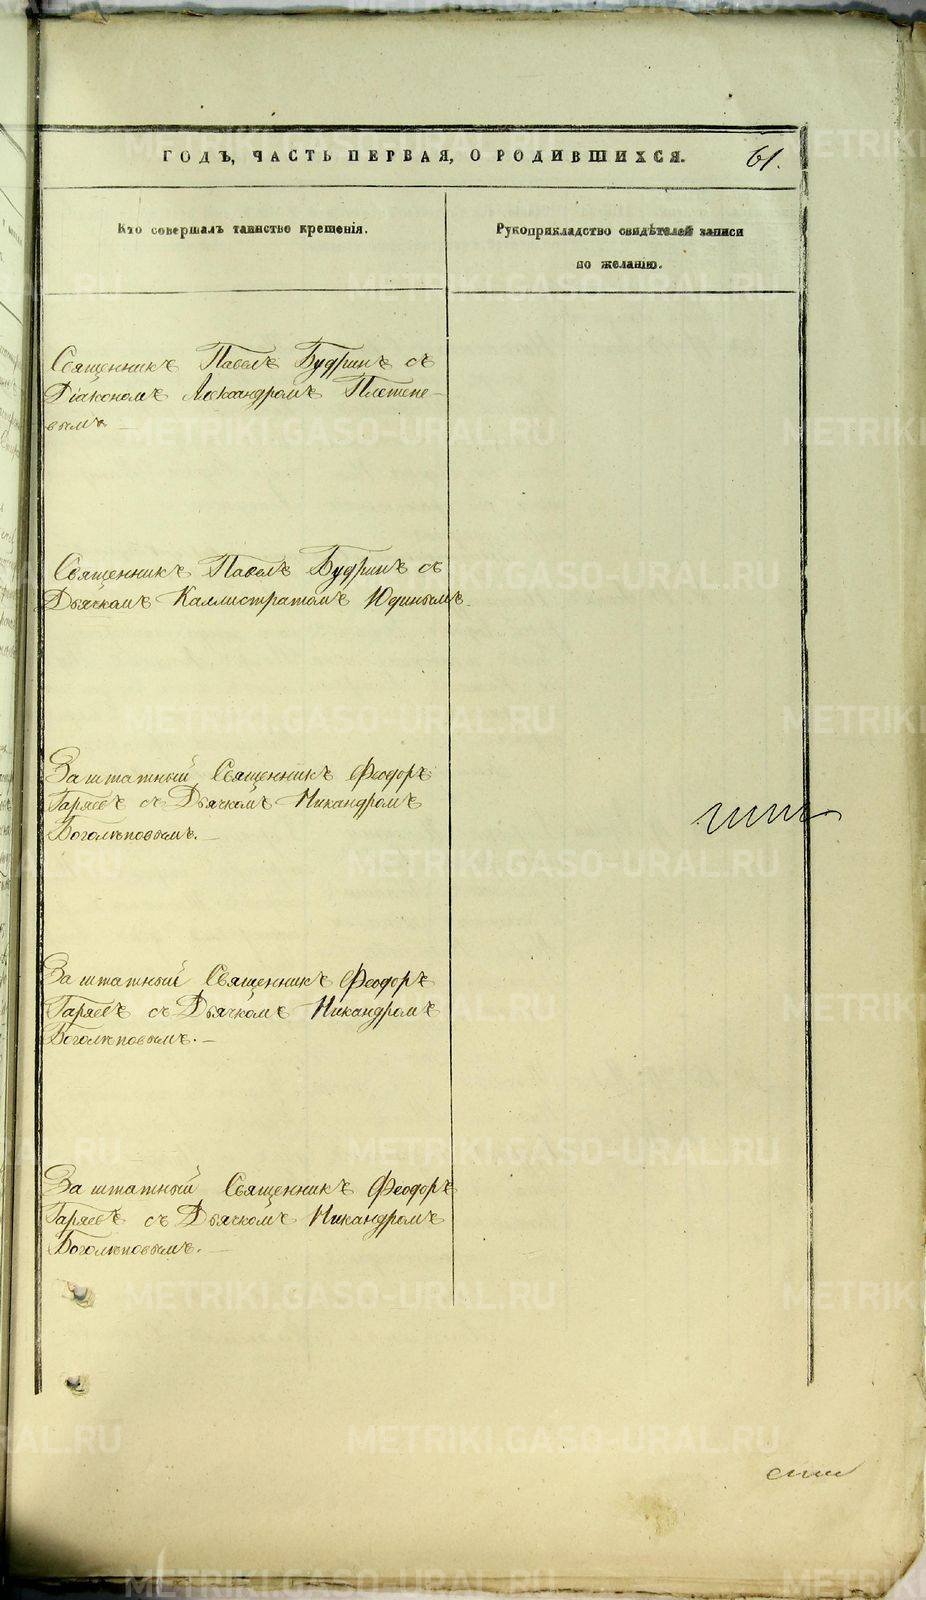 ГОДЪ, ЧАСТЬ ПЕРВАЯ, О РОДИВШИХСЯ. 61.
Кто совершалъ таинство крещенія.
Рукоприкладство свидѣтелей записи
по желанію.
Священникъ Павелъ Будринъ съ
Діакономъ Александромъ Плетене-
вымъ
Священникъ Павелъ Будринъ съ
Дьячкомъ Каллистратомъ Юдинымъ.
Заштатный Священникъ Феодоръ
Гаряевъ съ Дьячкомъ Никандромъ
Боголѣповымъ. —
Заштатный Священникъ Феодоръ
Гаряевъ съ Дьячкомъ Никандромъ
Боголѣповымъ. —
Заштатный Священникъ Феодоръ
Гаряевъ съ Дьячкомъ Никандромъ
Боголѣповымъ. —
METRIKI.GASO-URAL.RU